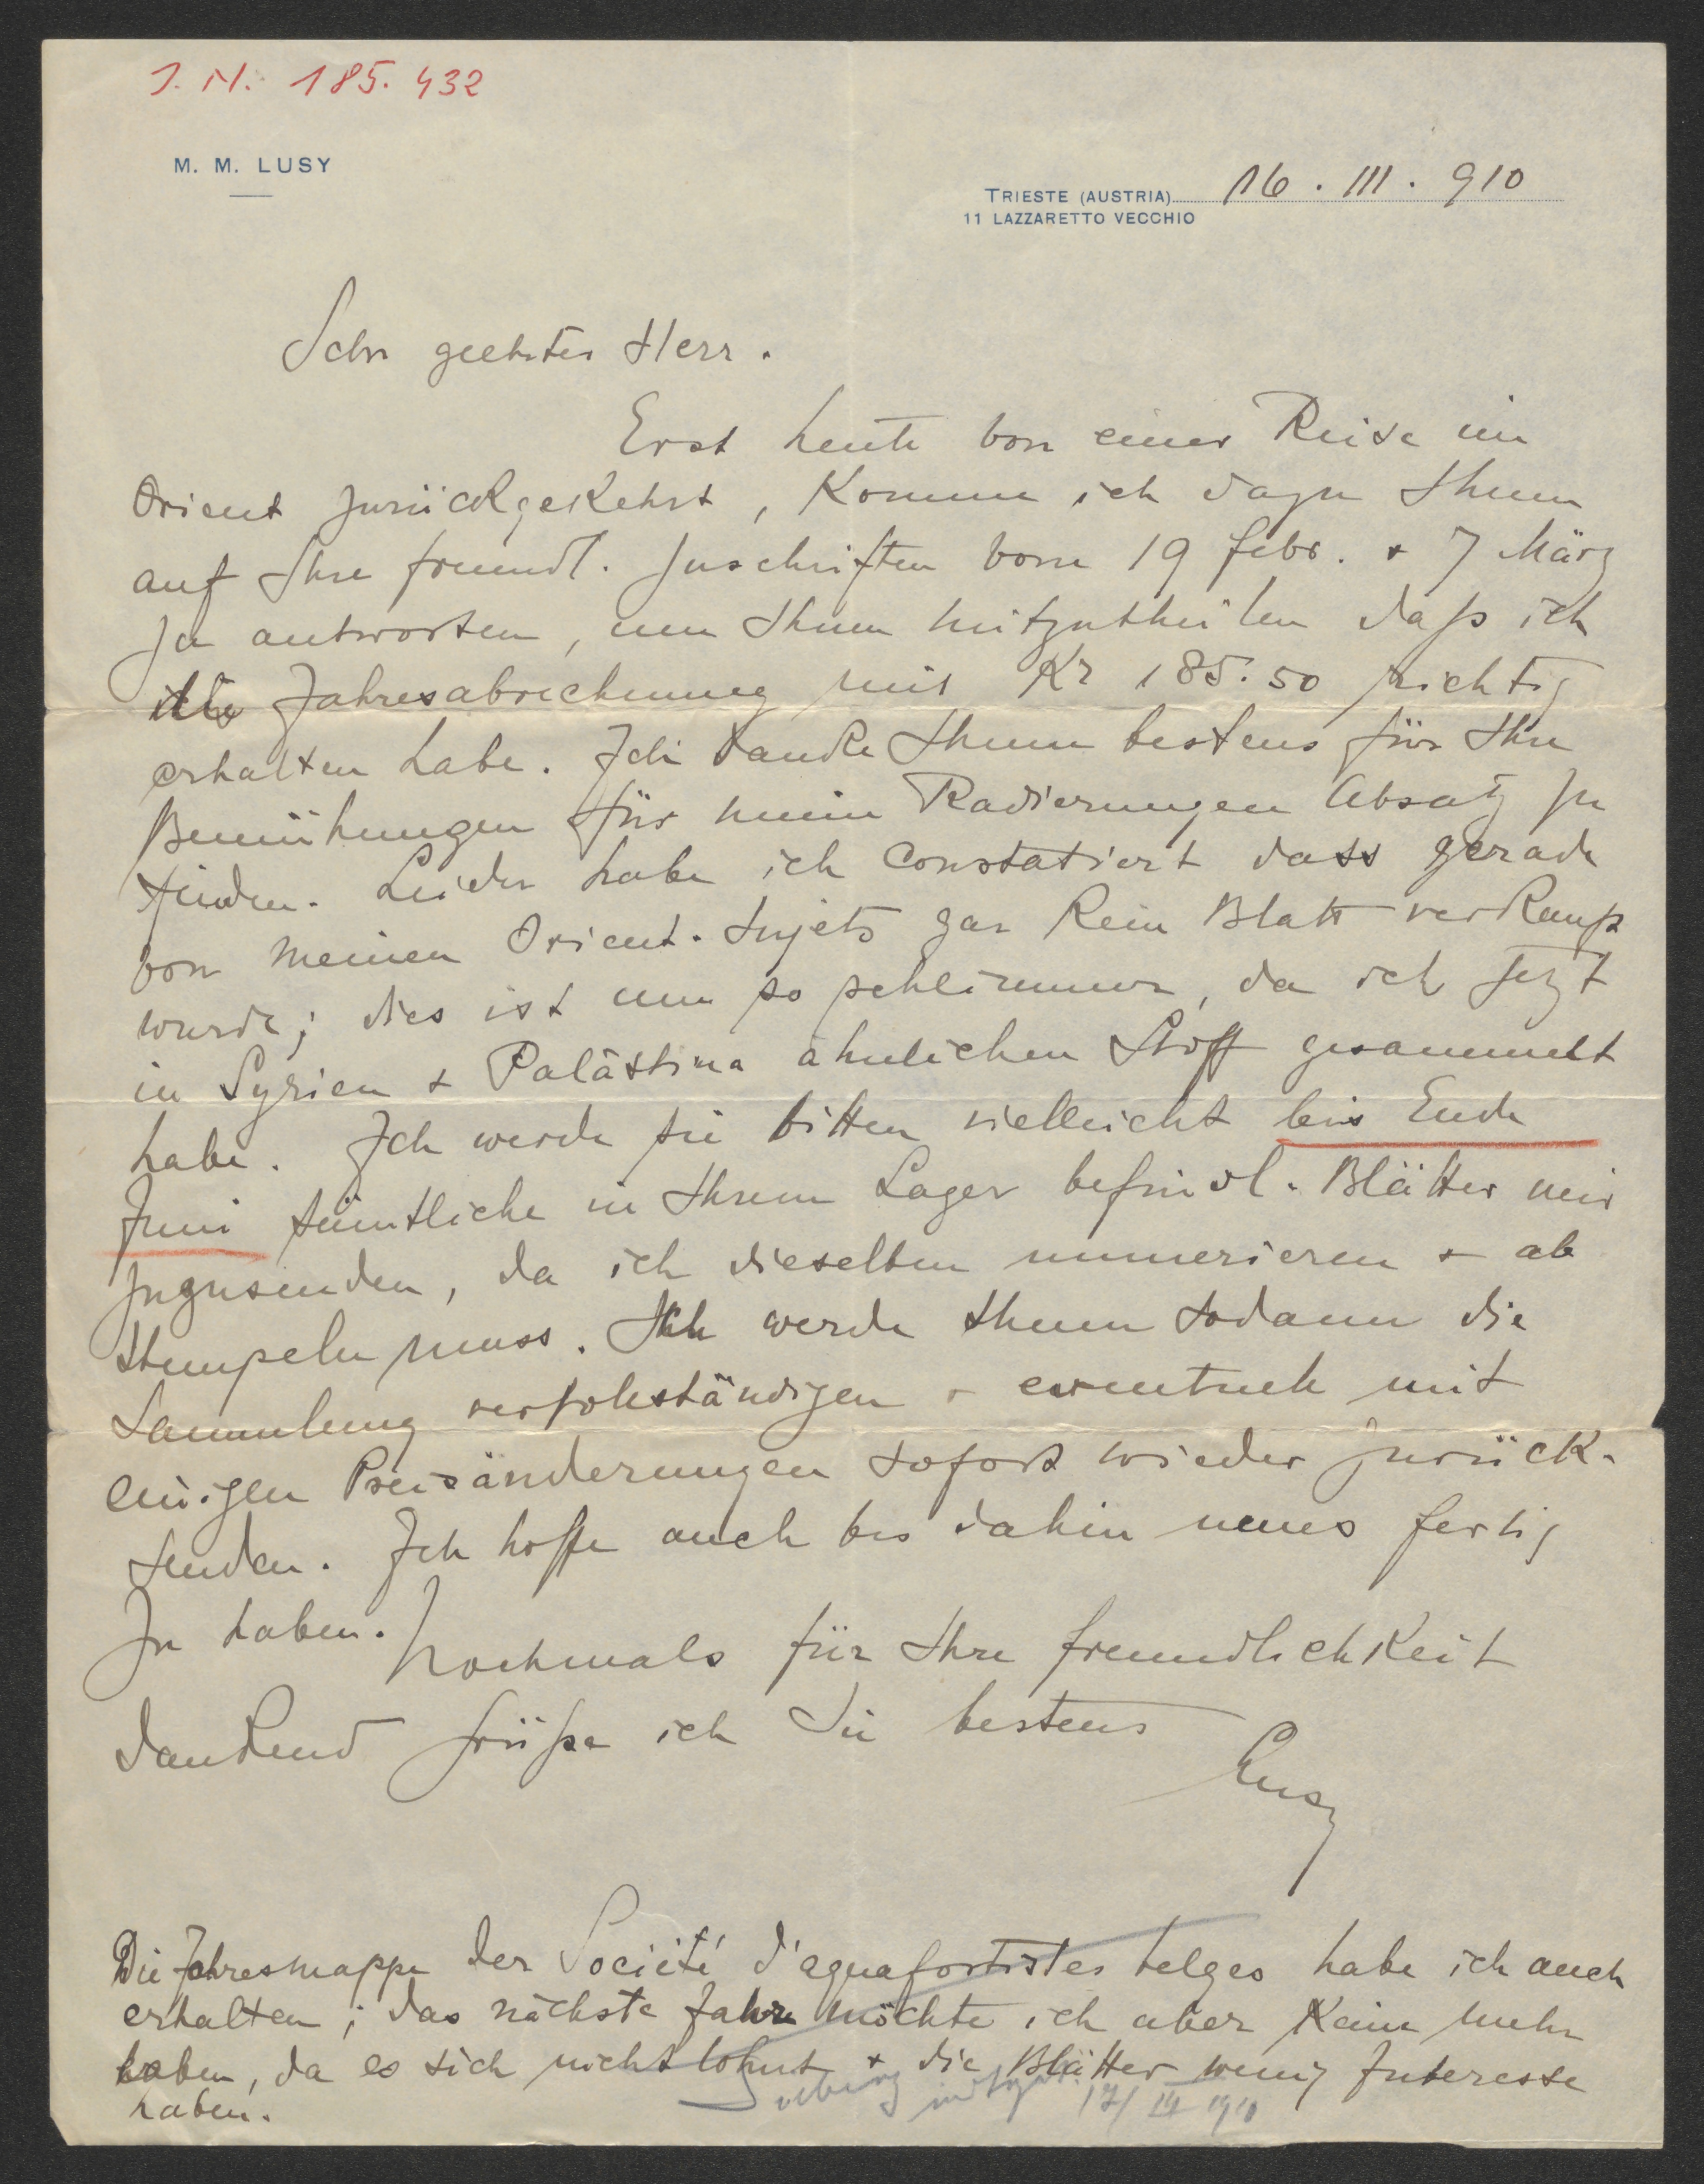 J. N. 185.432
M. M. LUSY
TRIESTE (AUSTRIA) 16. III. 910
11 LAZZARETTO VECCHIO
Sehr geehrter Herr.
Erst heute von einer Reise im
Orient zurückgekehrt, komme ich dazu Ihnen
auf Ihre freundl. Zuschriften vom 19 febr. + 7 März
zu antworten, um Ihnen mitzutheilen daß ich
die Jahresabrechnung mit Kr 185.50 richtig
erhalten habe. Ich danke Ihnen bestens für Ihre
Bemühungen für meine Radierungen Absatz zu
finden. Leider habe ich constatiert dass gerade
von meinen Orient-Sujets gar kein Blatt verkauft
wurde; dies ist um so schlimmer, da ich jezt
in Syrien + Palästina ähnlichen Stoff gesammelt
habe. Ich werde sie bitten vielleicht bis Ende
Juni sämtliche in Ihrem Lager befindl. Blätter mir
zuzusenden, da ich dieselben numerieren + ab
stempeln muss. Ich werde Ihnen sodann die
Sammlung vervollständigen + eventuell mit
einigen Preisänderungen sofort wieder zurück-
senden. Ich hoffe auch bis dahin neues fertig
zu haben.
Nochmals für Ihre freundlichkeit
dankend grüße ich Sie bestens
Lusy
Die Jahresmappe der Société d'aquafortistes belges habe ich auch
erhalten; das nächste Jahr möchte ich aber keine mehr
haben, da es sich nicht lohnt + die Blätter wenig Interesse
haben.
17/III 1910